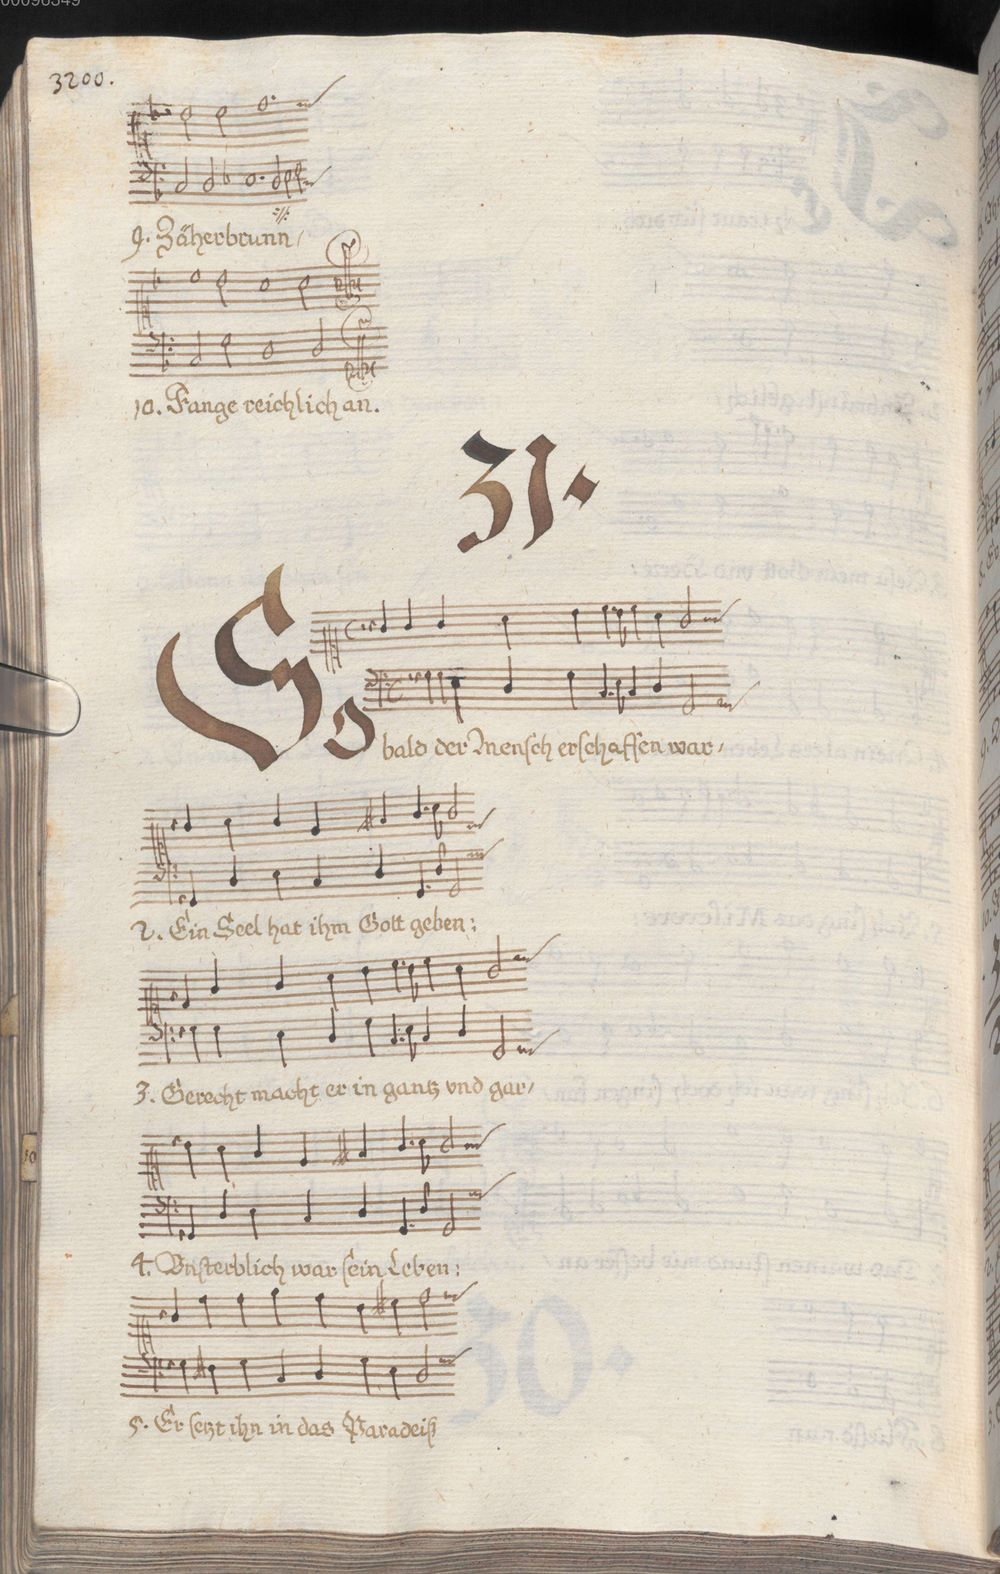 00096349
3200.
9. Zäherbrunn/
10. Fange reichlich an.
31.
So
bald der Mensch erschaffen war/
2. Ein Seel hat ihm Gott geben:
3. Gerecht macht er in gantz vnd gar/
4. Vnsterblich war sein Leben:
5. Er setzt ihn in das Paradeiß